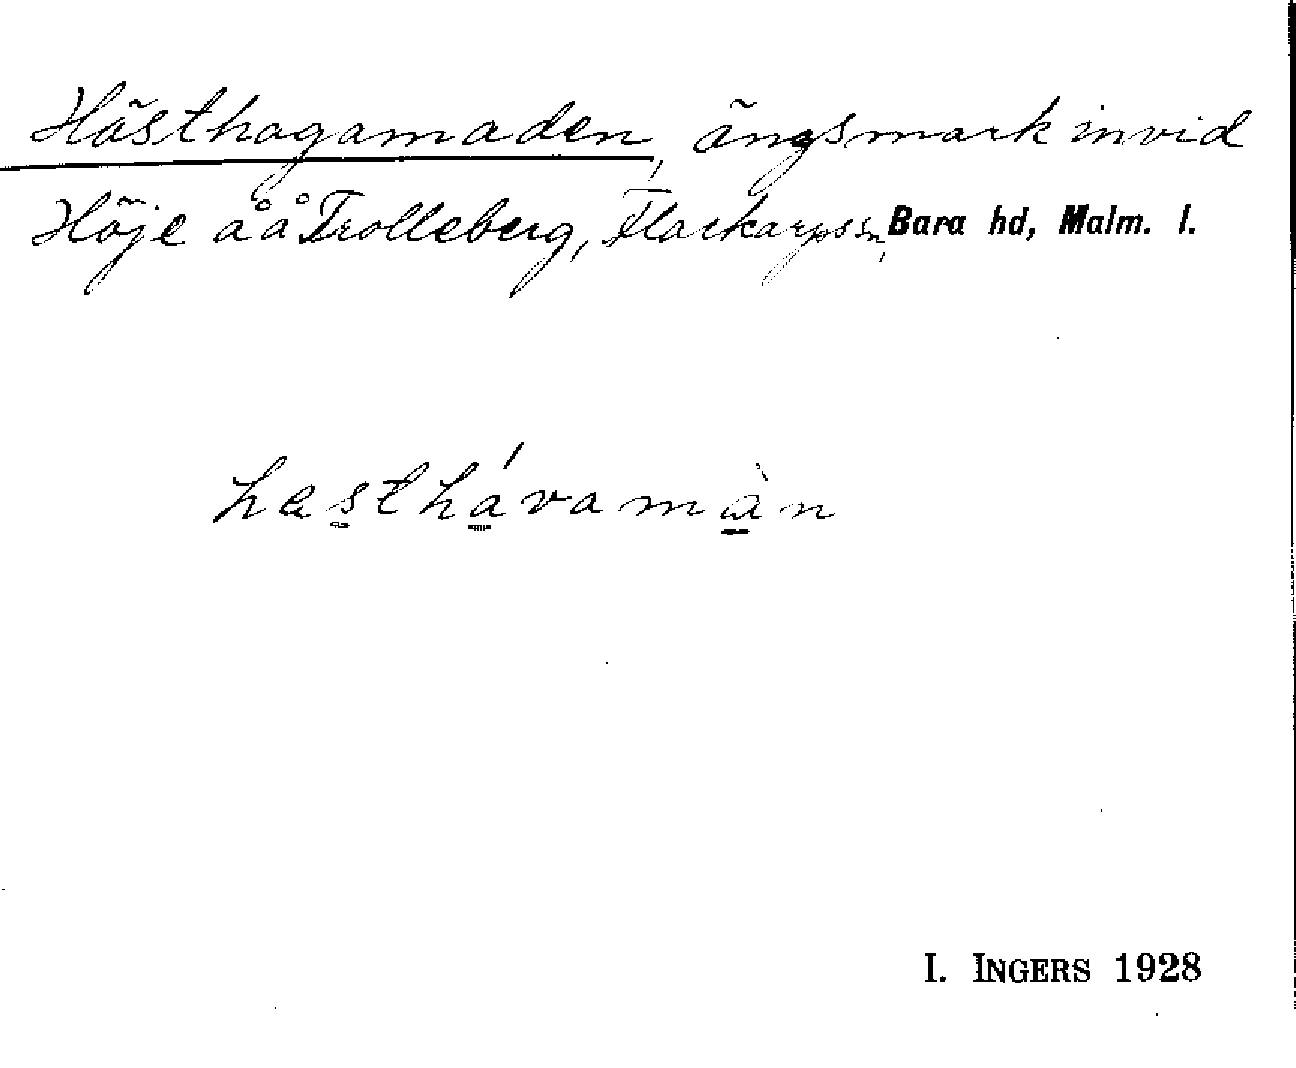 Hästhagamaden, ängsmark invid
Höje å å Trolleberg, Flackarps sn, Bara hd, Malm. l.
hasthávamàn
I. INGERS 1928